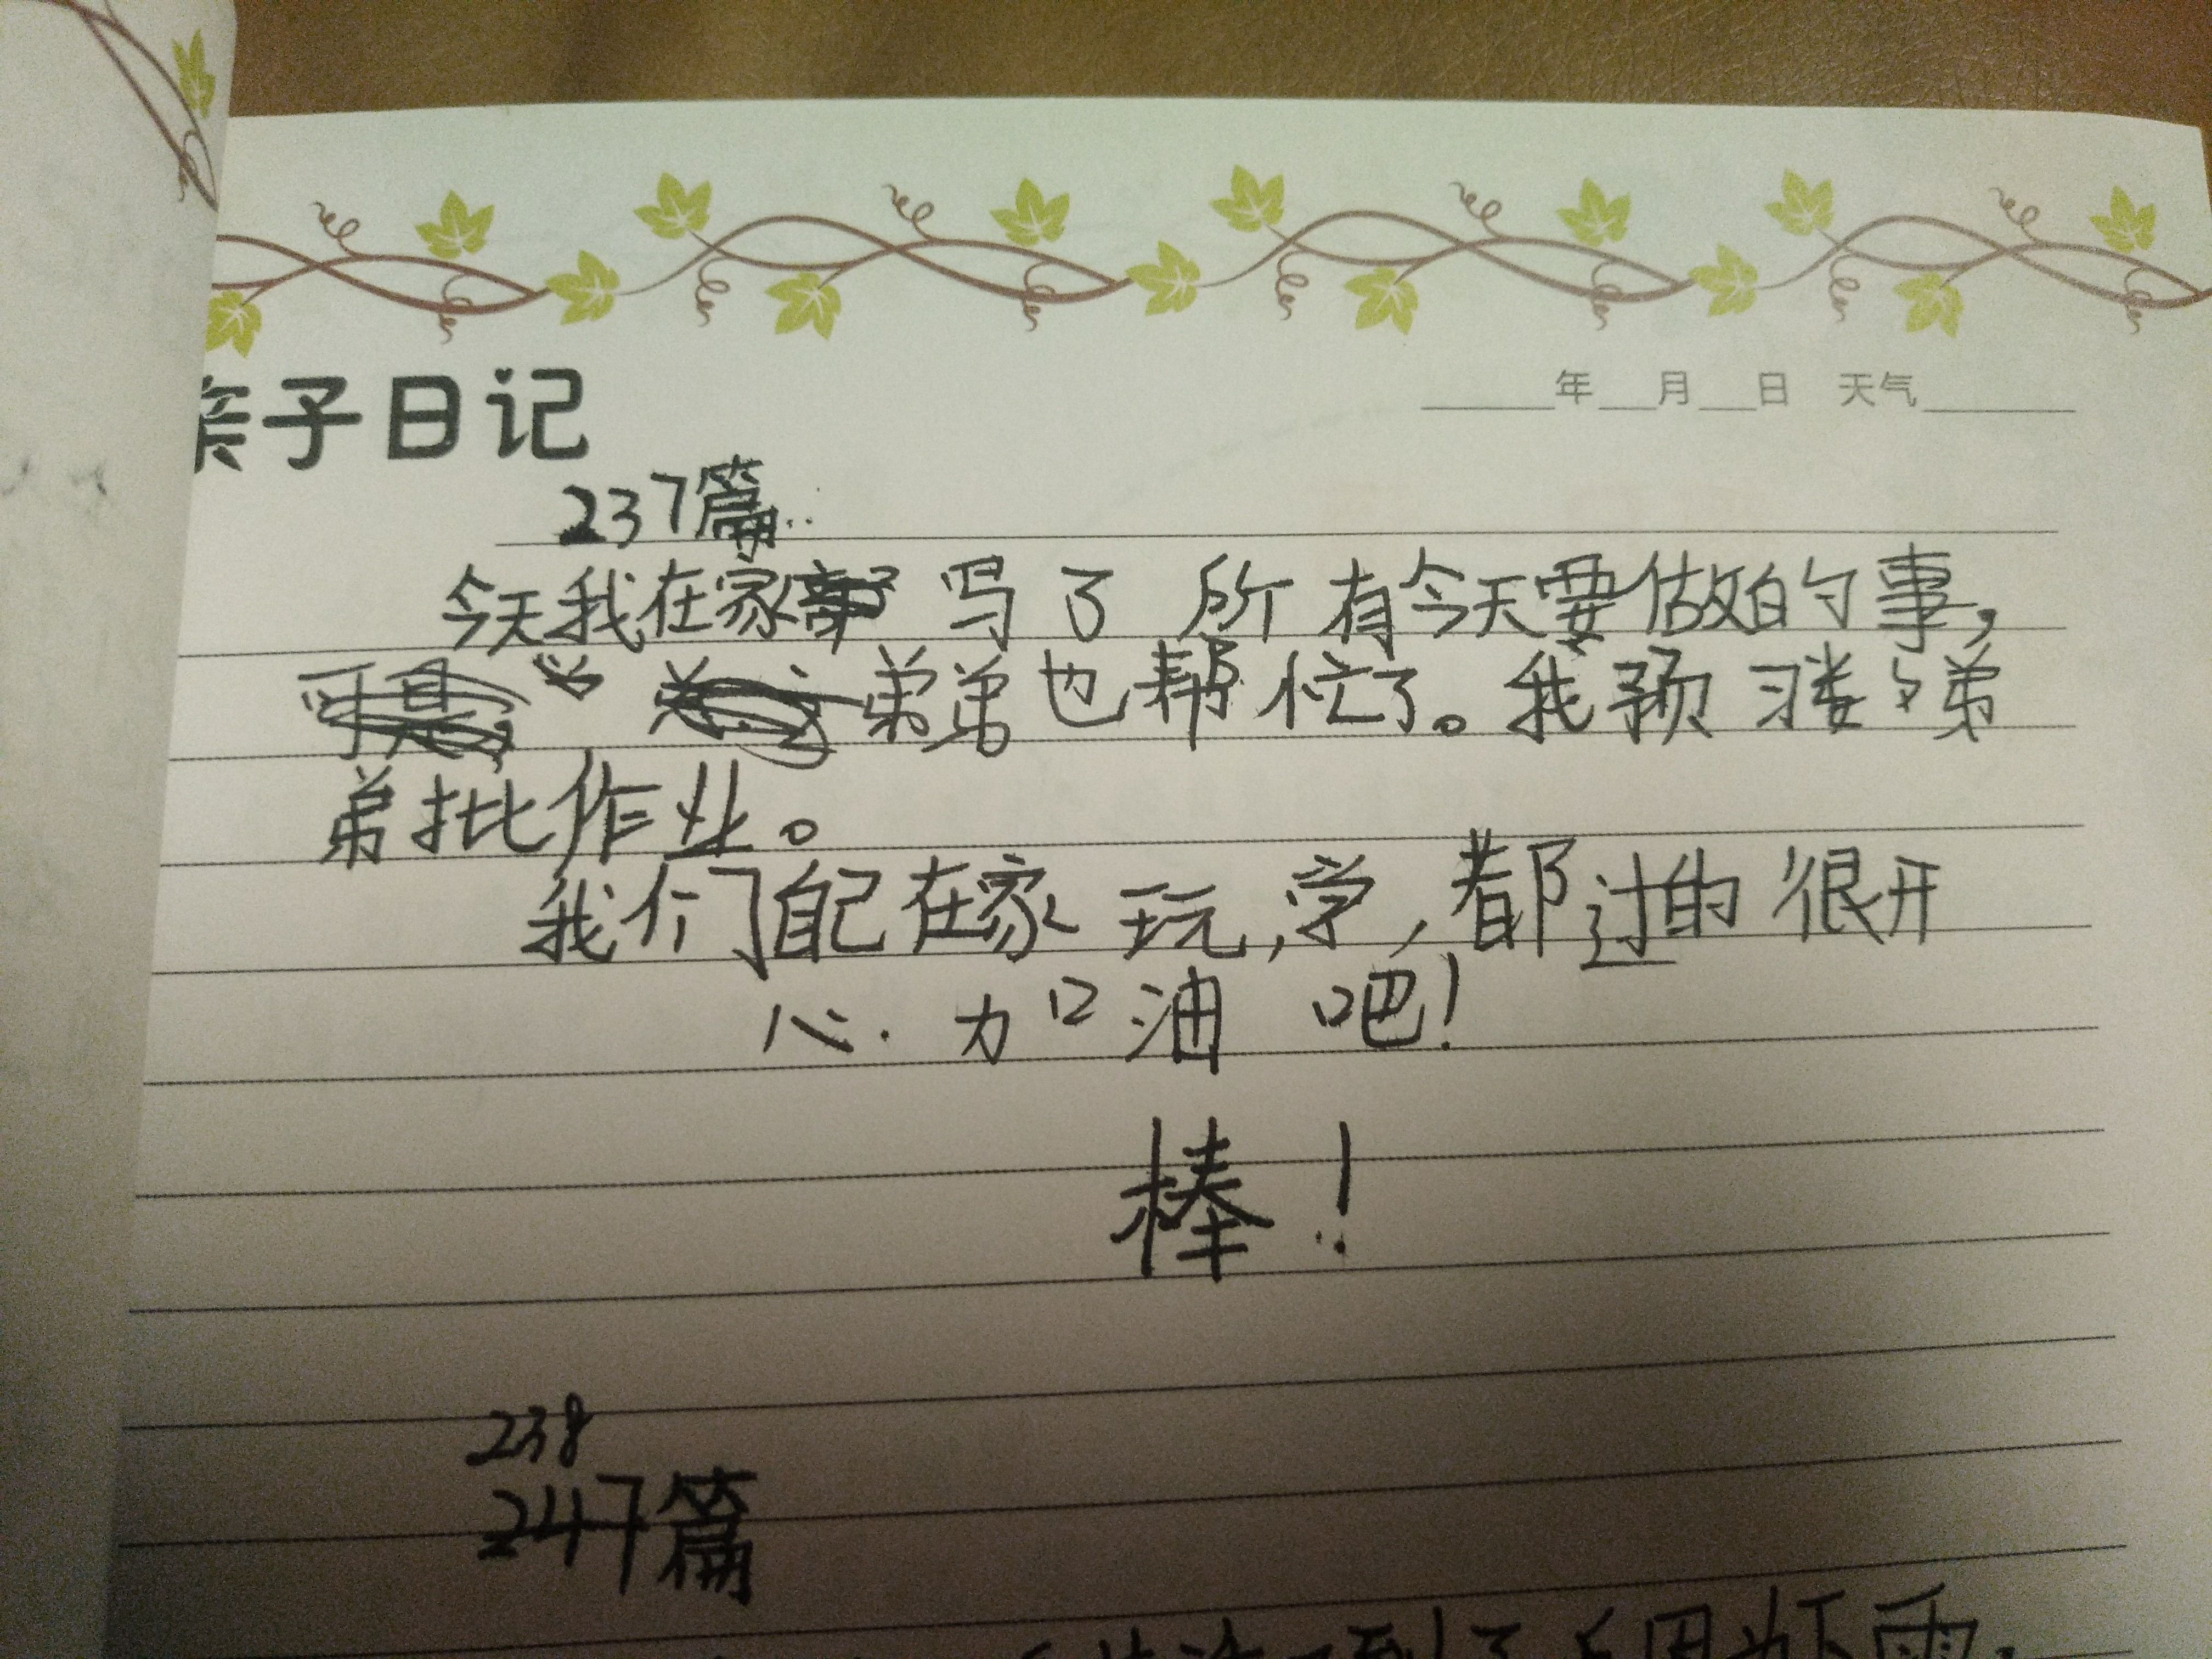 亲子日记
年 月 日 天气
237篇
今天我在家写了所有今天要做的事,
弟弟也帮忙了。我预习娄弟
弟批作业。
我们自己在家玩,学,都过的很开
心.加油吧!
棒!
238
247篇
到了 因为下雨